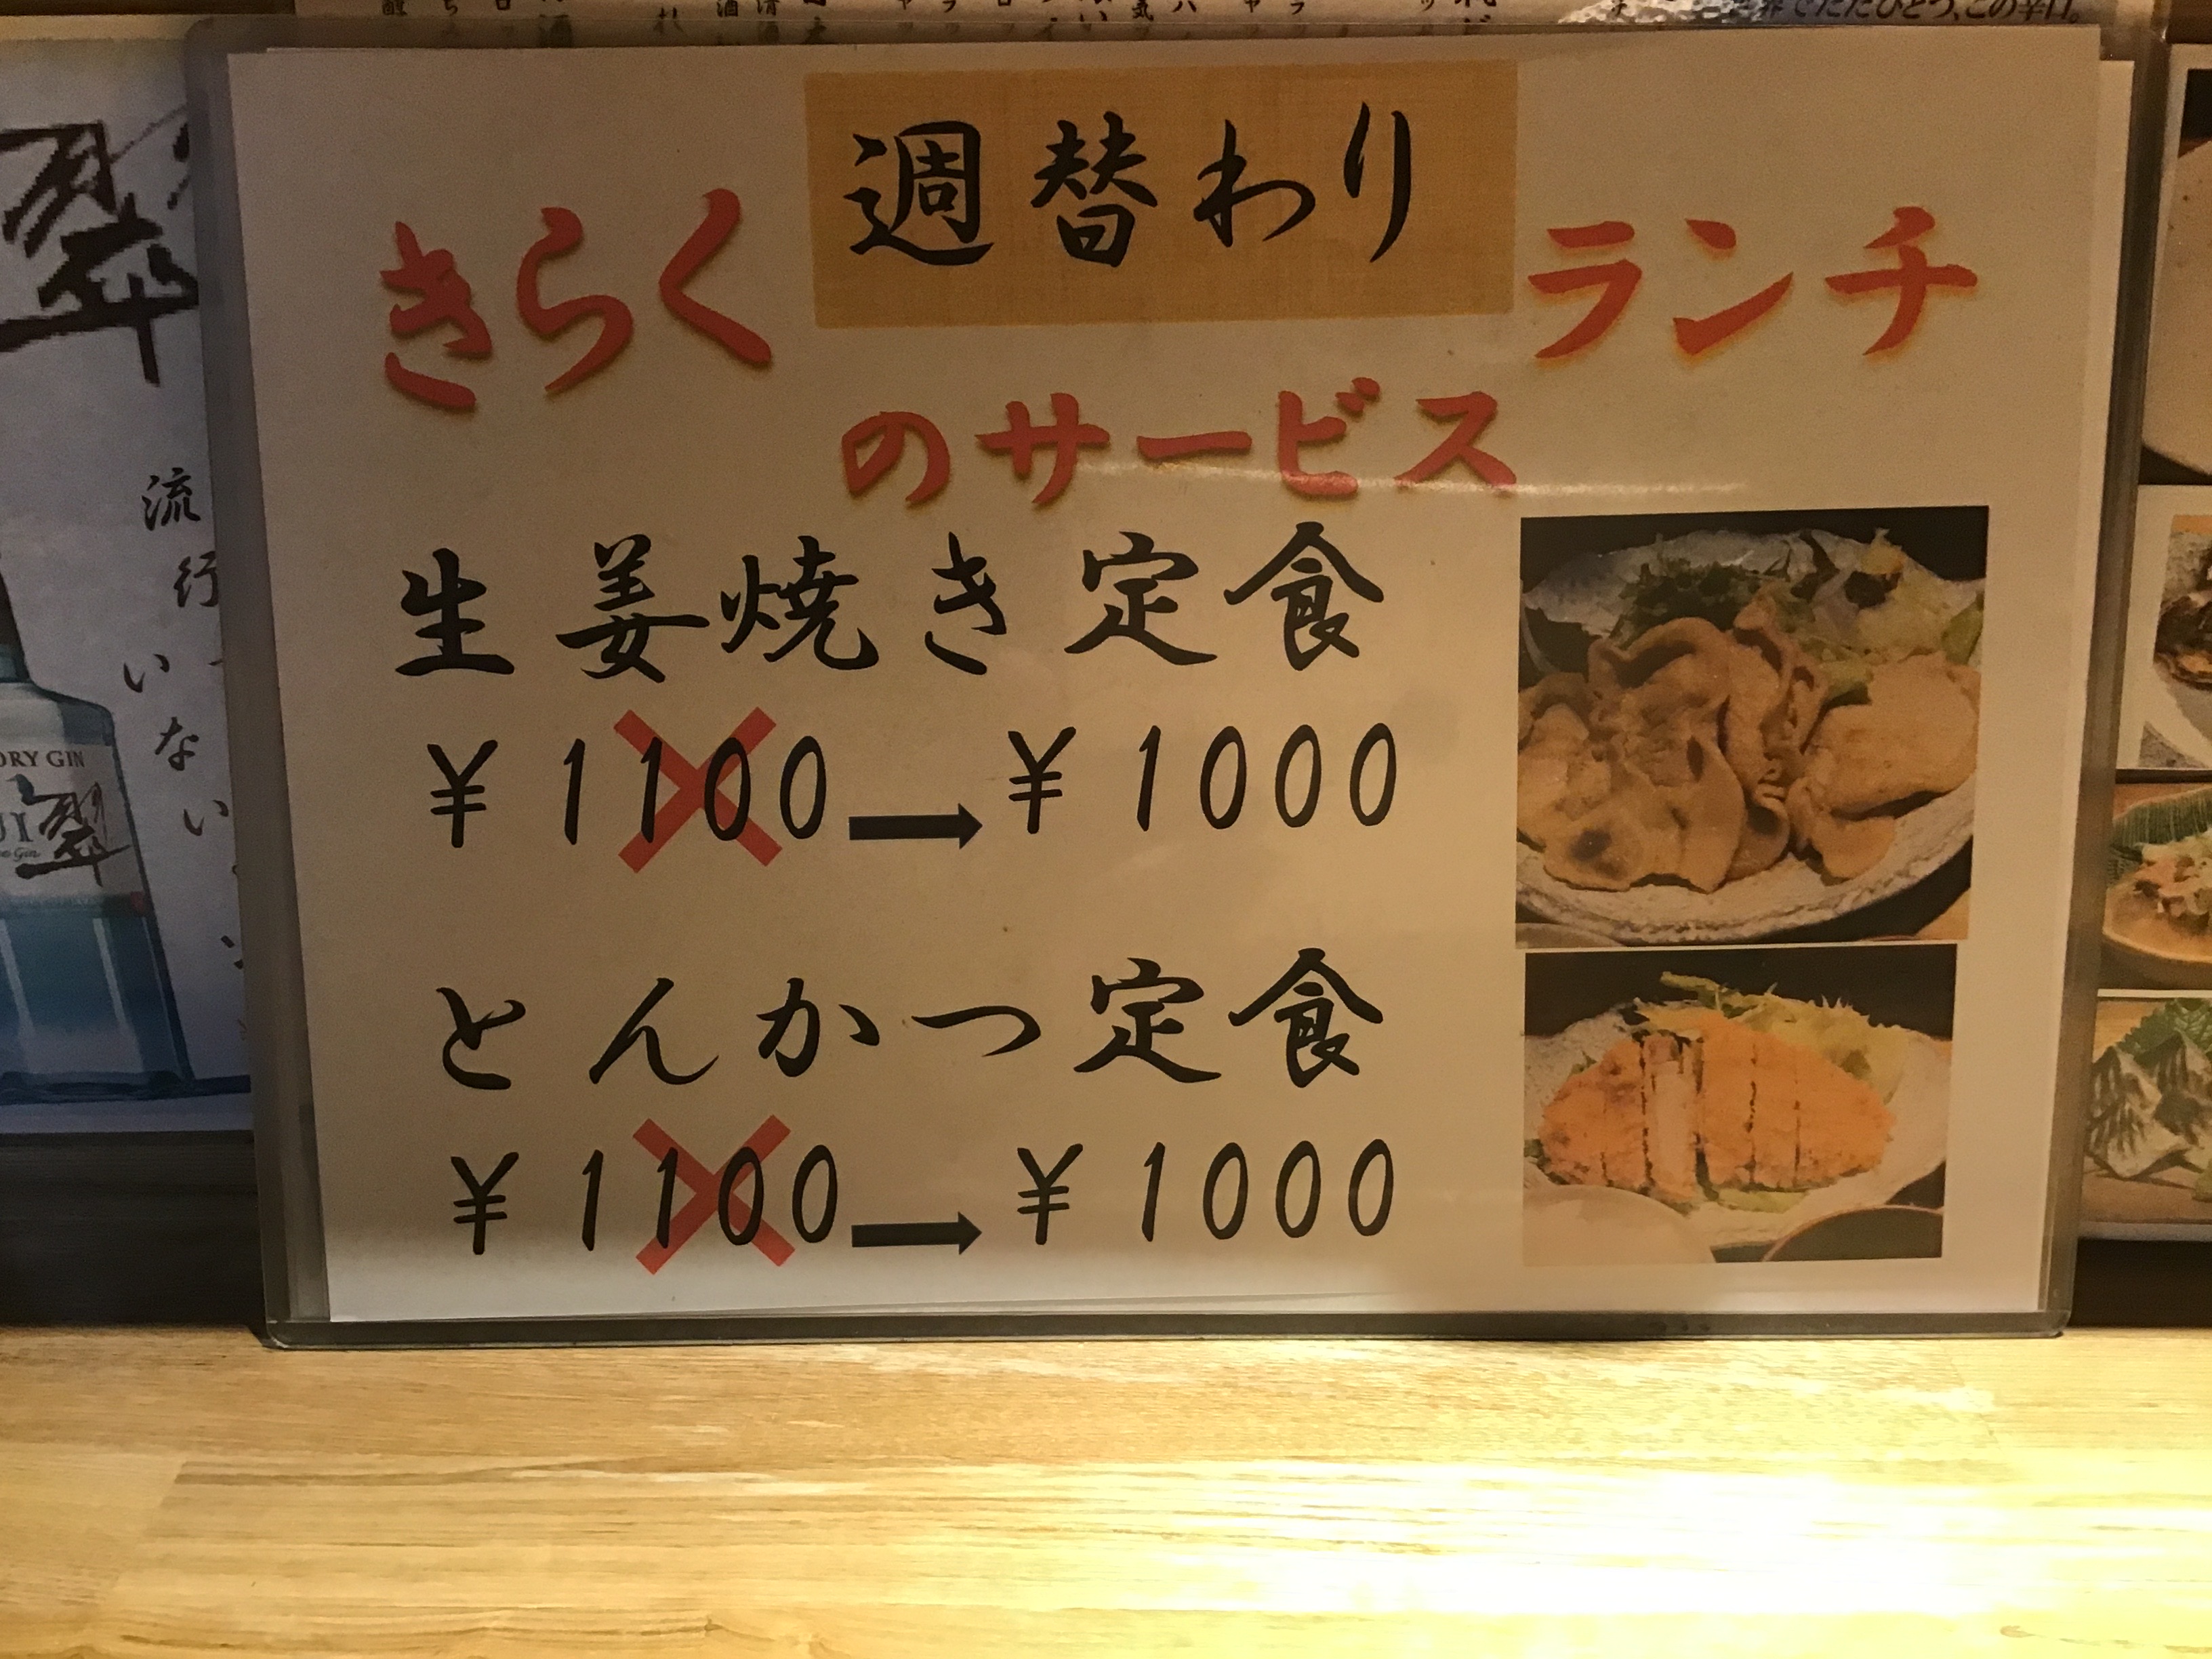 週替わり
きらく
ランチ
のサービス
生姜焼き定食
¥1100→¥1000
とんかつ定食
¥1100→¥1000
翠
流行
いない
DRY GIN
翠
でただひとつ、この辛口。